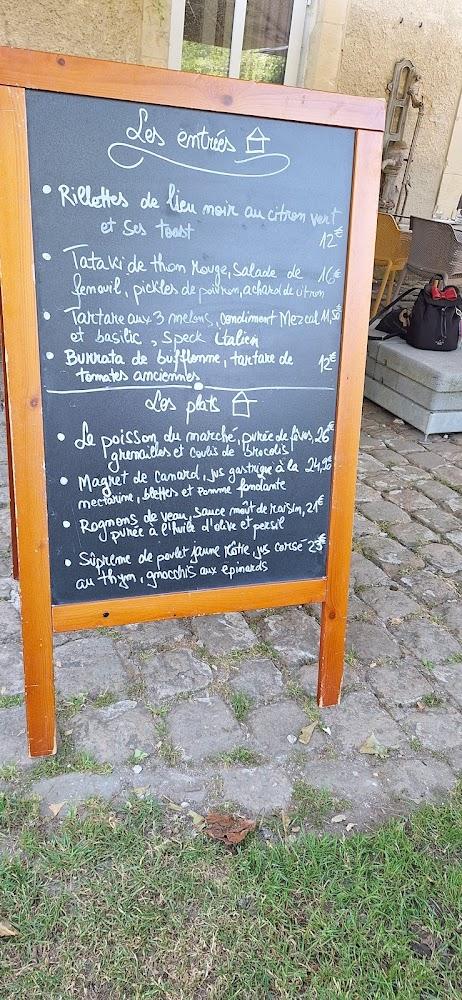 Les entrées
• Rillettes de lieu noir au citron vert
et ses toast 12€
• Tataki de thon rouge, Salade de 16€
fenouil, pickles de poivron, achard de citron
• Tartare aux 3 melons, condiment Mezcal 11,50€
et basilic, speck italien
• Burrata de bufflonne, tartare de 12€
tomates anciennes
Les plats
• Le poisson du marché, purée de fèves, 26€
grenailles et coulis de brocolis
• Magret de canard, jus gastrique à la 24,90€
nectarine, blettes et pomme fondante
• Rognons de veau, sauce moût de raisin, 21€
purée à l'huile d'olive et persil
• Suprême de poulet jaune rôtie, jus corsé 23€
au thym, gnocchis aux épinards